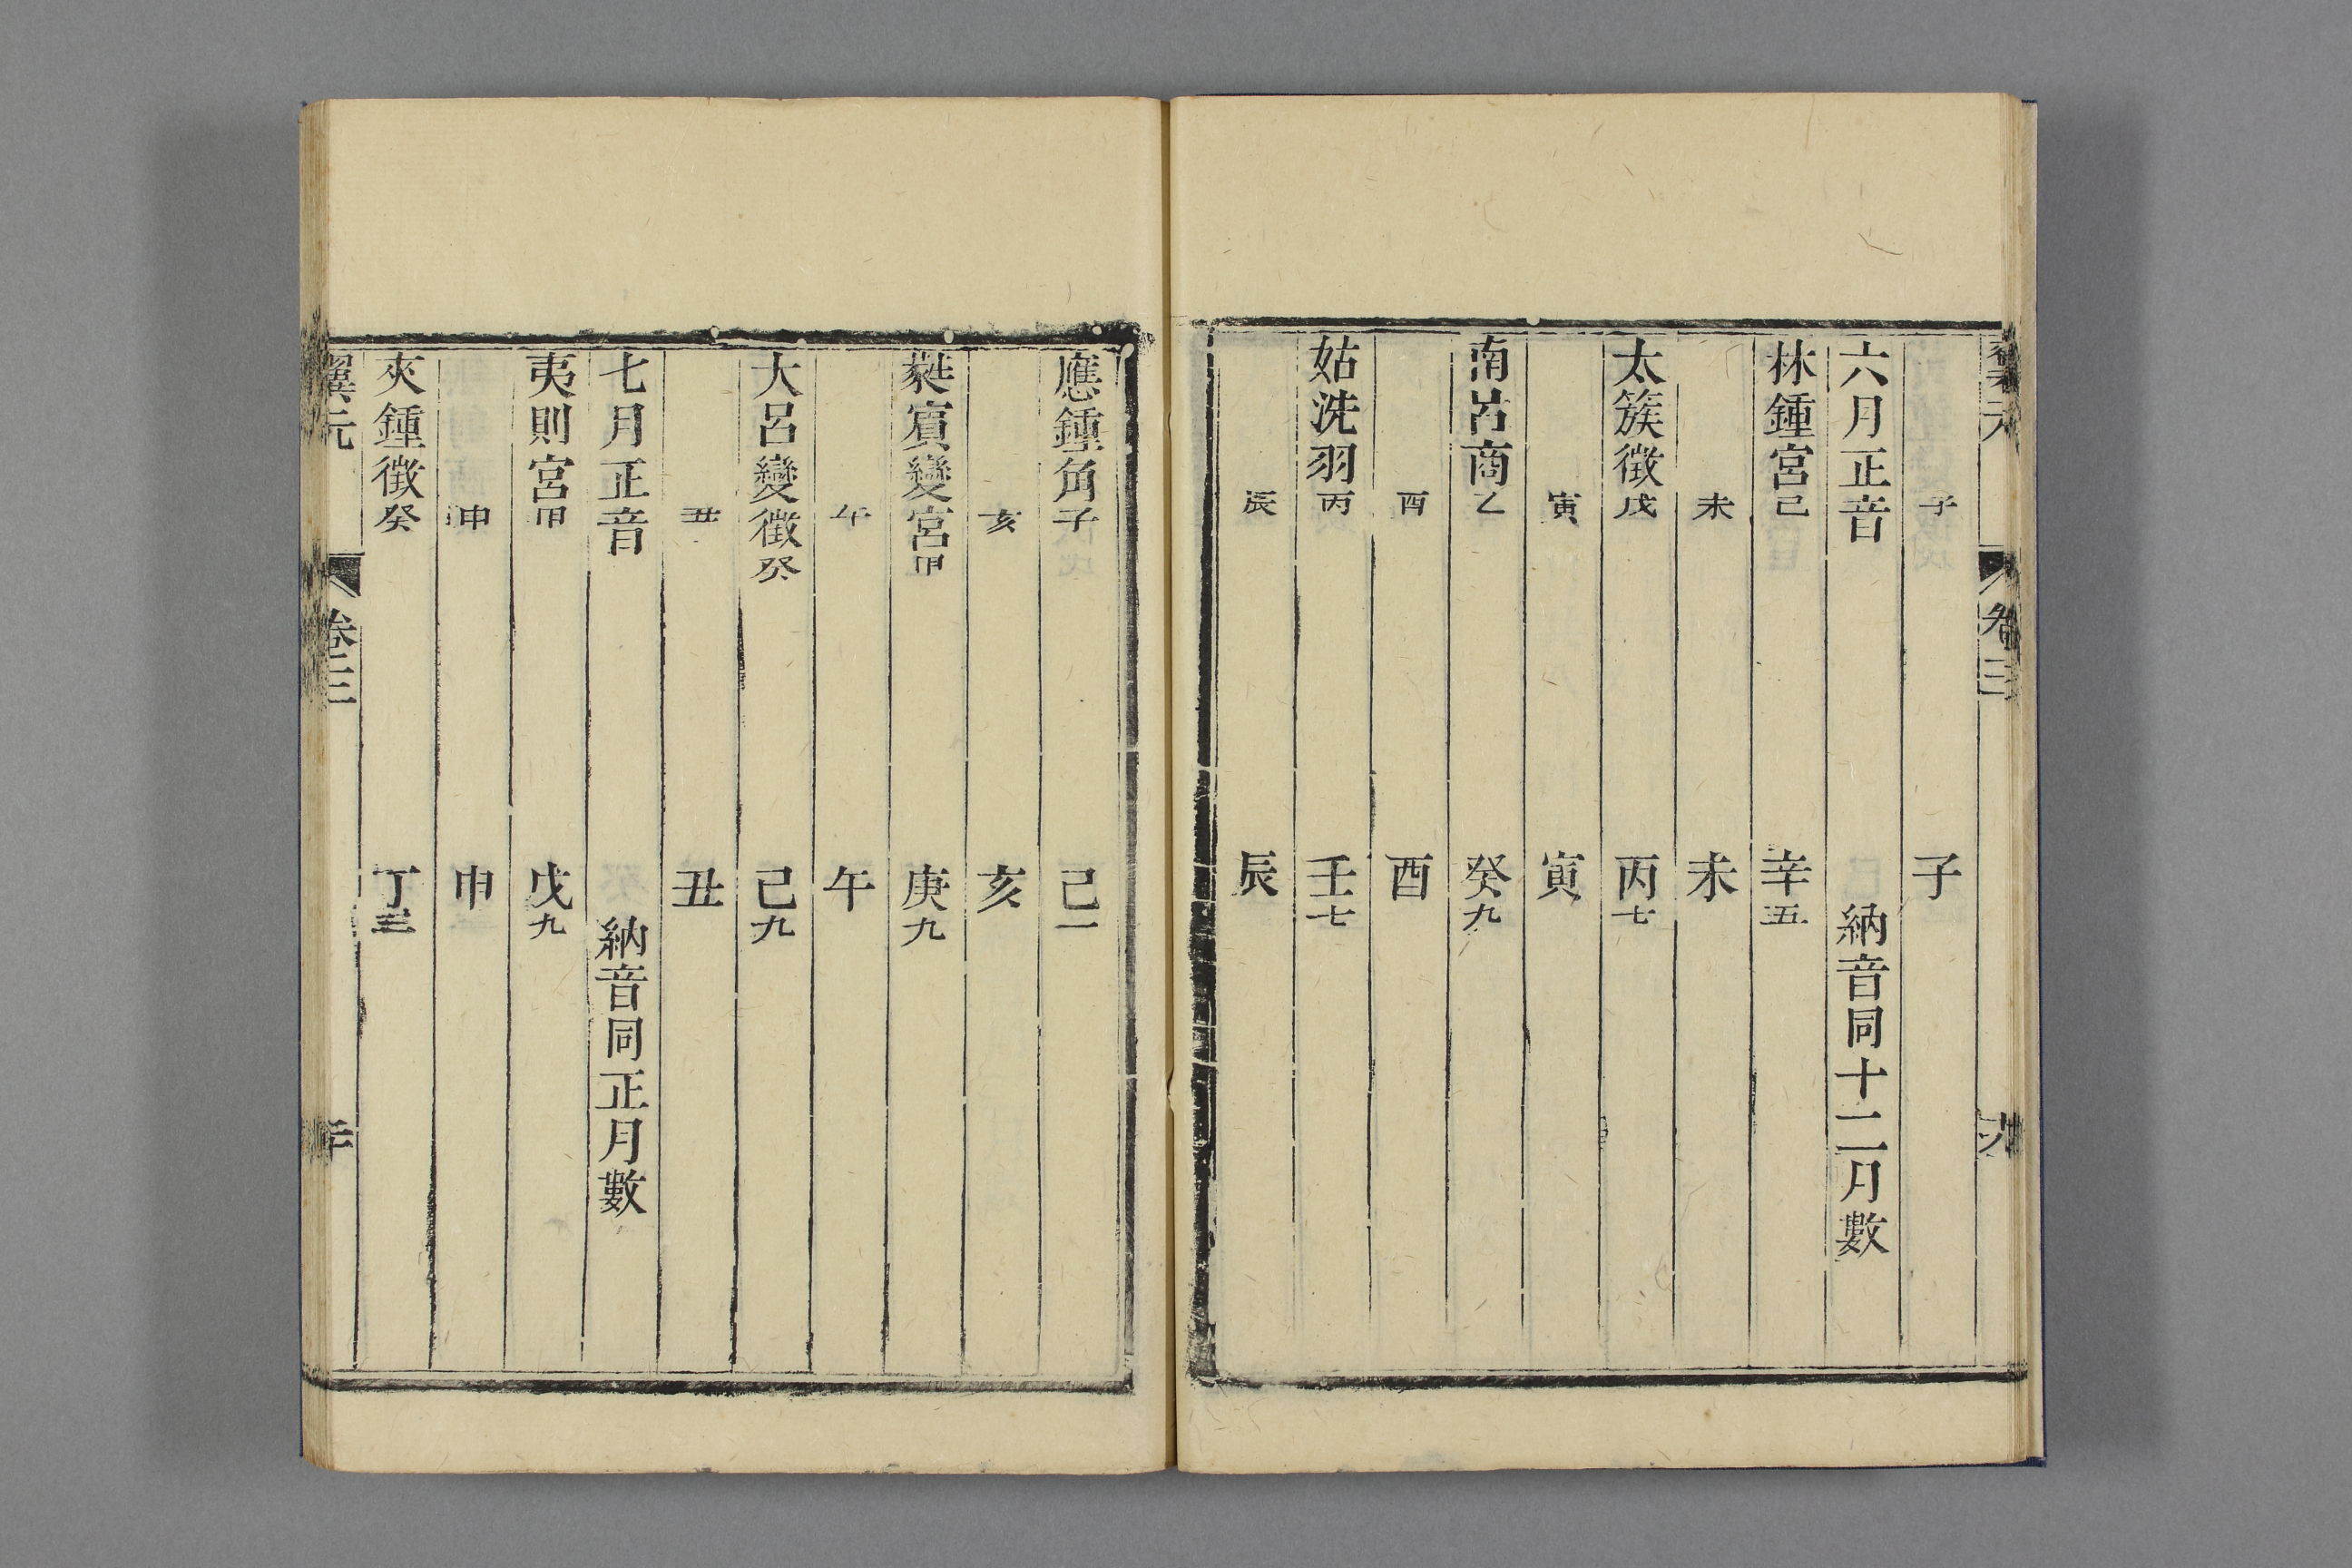 子　子
六月正音　納音同十二月數
林鍾宮己　辛五
未　未
太簇徵戊　丙七
寅　寅
南呂商乙　癸九
酉　酉
姑洗羽丙　壬七
辰　辰
應鍾角子　己一
亥　亥
蕤賓變宮甲　庚九
午　午
大呂變徵癸　己九
丑　丑
七月正音　納音同正月數
夷則宮甲　戊九
申　申
夾鍾徵癸　丁三
翼元　卷三